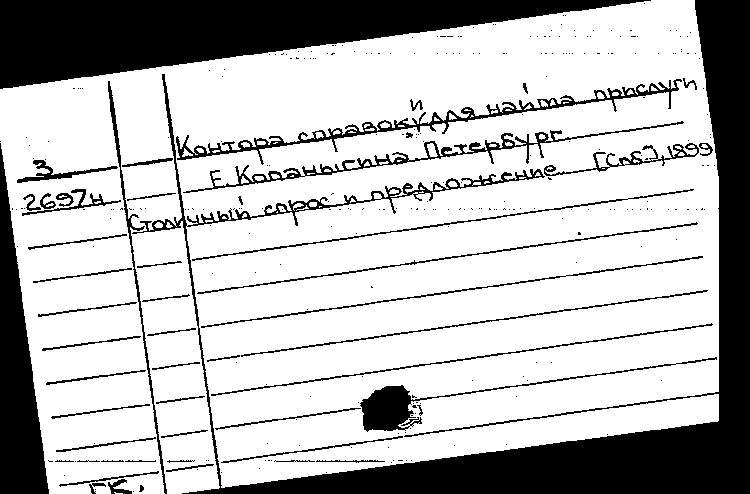 Контора справок и для найма прислуги
3
Е. Копаныгина. Петербург.
2697н
Столичный спрос и предложение [Спб], 1899
ГК.